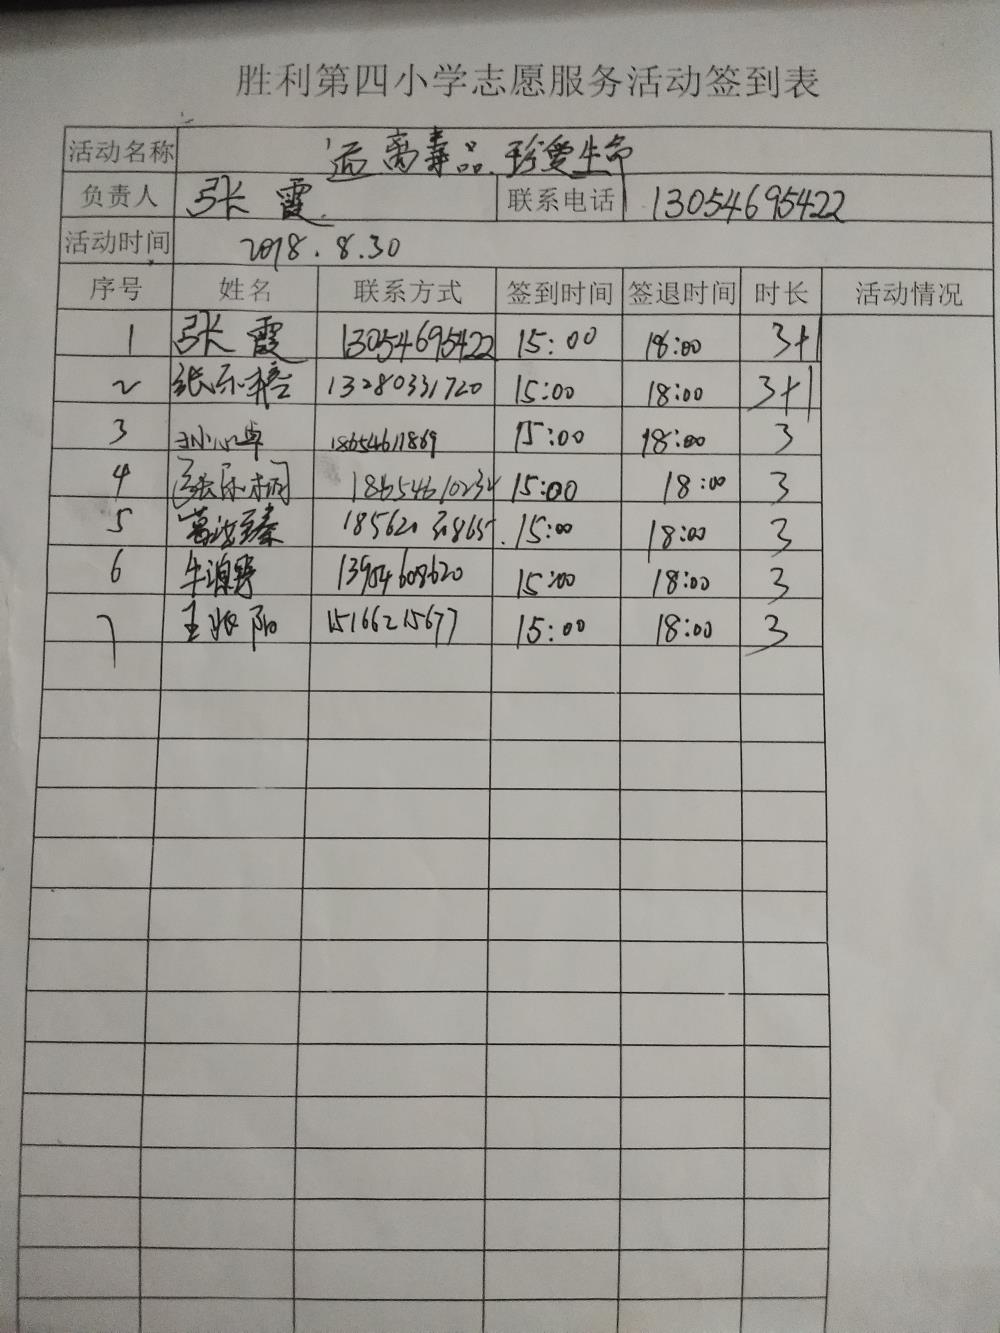 胜利第四小学志愿服务活动签到表
活动名称 远离毒品 珍爱生命
负责人 张霞 联系电话 13054695422
活动时间 2018.8.30
序号 姓名 联系方式 签到时间 签退时间 时长 活动情况
1 张霞 13054695422 15:00 18:00 3+1
2 张乐 13280331720 15:00 18:00 3+1
3 卓 18654611869 15:00 18:00 3
4 张乐桐 18654610232 15:00 18:00 3
5 葛 臻 15:00 18:00 3
6 牛 野 13954608620 15:00 18:00 3
7 王 阳 15166215677 15:00 18:00 3